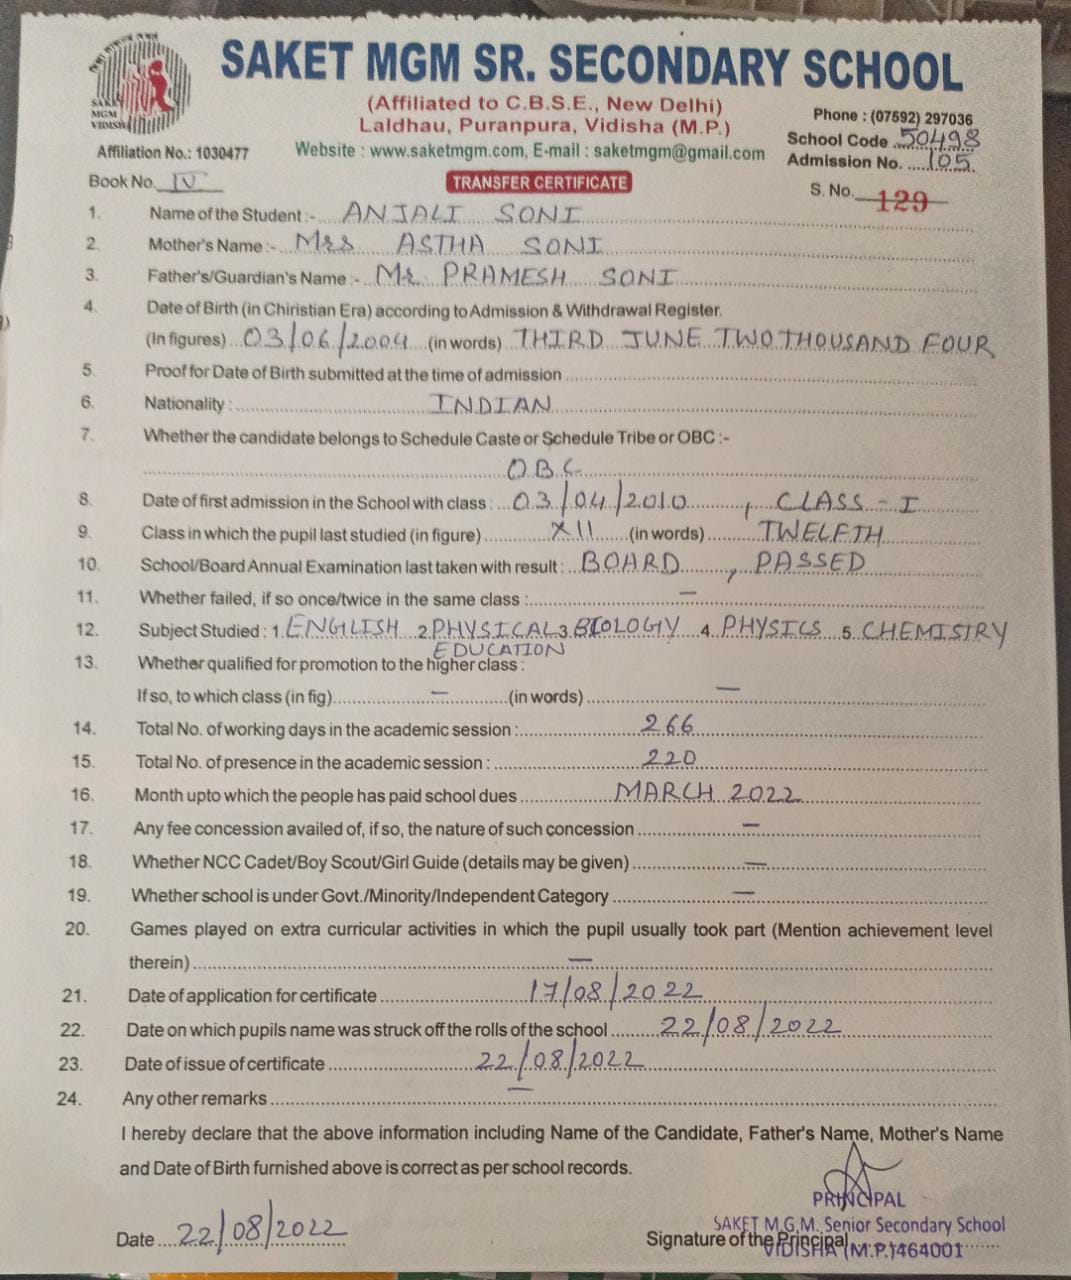 SAKET MGM SR. SECONDARY SCHOOL
SAKET
MGM
VIDISHA
(Affiliated to C.B.S.E., New Delhi)
Laldhau, Puranpura, Vidisha (M.P.)
Phone : (07592) 297036
School Code 50498
Affiliation No.: 1030477
Website : www.saketmgm.com, E-mail : saketmgm@gmail.com
Admission No. 105
Book No. IV
TRANSFER CERTIFICATE
S. No. 129
1. Name of the Student :- ANJALI SONI
2. Mother's Name :- Mrs ASTHA SONI
3. Father's/Guardian's Name :- Mr. PRAMESH SONI
4. Date of Birth (in Chiristian Era) according to Admission & Withdrawal Register.
(In figures) 03/06/2004 (in words) THIRD JUNE TWO THOUSAND FOUR
5. Proof for Date of Birth submitted at the time of admission
6. Nationality : INDIAN
7. Whether the candidate belongs to Schedule Caste or Schedule Tribe or OBC :-
OBC
8. Date of first admission in the School with class : 03/04/2010, CLASS - I
9. Class in which the pupil last studied (in figure) XII (in words) TWELFTH
10. School/Board Annual Examination last taken with result : BOARD, PASSED
11. Whether failed, if so once/twice in the same class : —
12. Subject Studied : 1. ENGLISH 2. PHYSICAL 3. BIOLOGY 4. PHYSICS 5. CHEMISTRY
EDUCATION
13. Whether qualified for promotion to the higher class :
If so, to which class (in fig) — (in words) —
14. Total No. of working days in the academic session : 266
15. Total No. of presence in the academic session : 220
16. Month upto which the people has paid school dues MARCH 2022
17. Any fee concession availed of, if so, the nature of such concession —
18. Whether NCC Cadet/Boy Scout/Girl Guide (details may be given) —
19. Whether school is under Govt./Minority/Independent Category —
20. Games played on extra curricular activities in which the pupil usually took part (Mention achievement level
therein) —
21. Date of application for certificate 17/08/2022
22. Date on which pupils name was struck off the rolls of the school 22/08/2022
23. Date of issue of certificate 22/08/2022
24. Any other remarks —
I hereby declare that the above information including Name of the Candidate, Father's Name, Mother's Name
and Date of Birth furnished above is correct as per school records.
PRINCIPAL
SAKET M.G.M. Senior Secondary School
Date 22/08/2022
Signature of the Principal
VIDISHA (M.P.) 464001